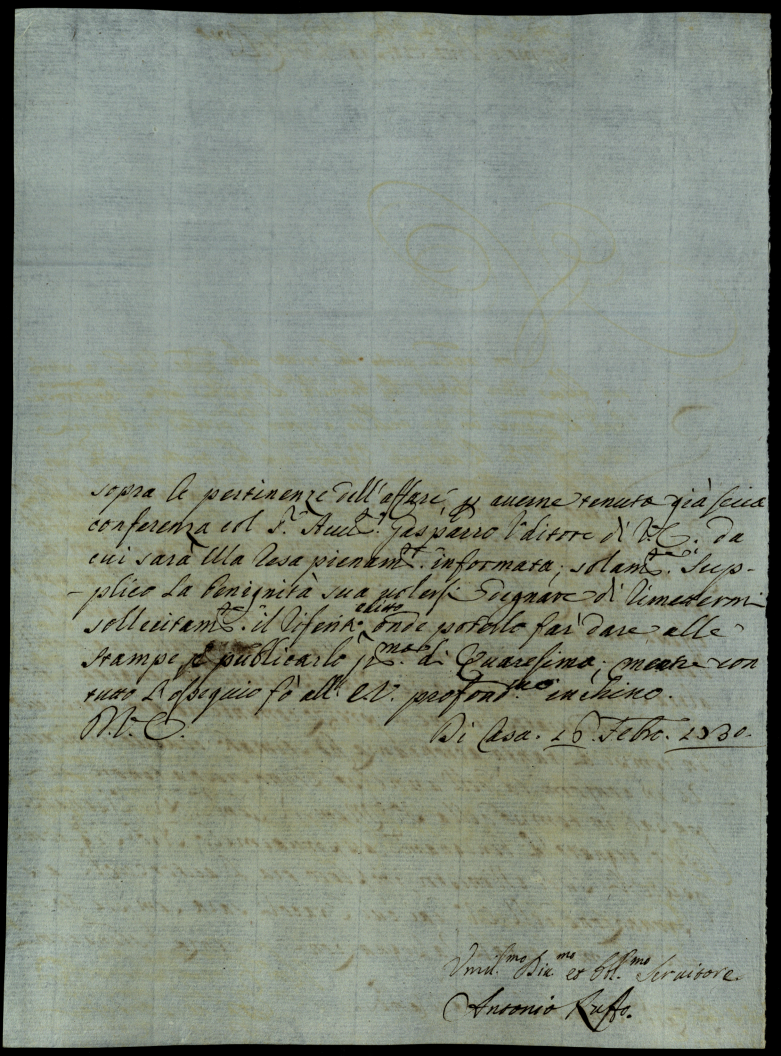 sopra le pertinenze dell'affare, p averne tenuta già seco
conferenza col S.r Avv.to Gasparro Uditore di V.E. da
cui sarà Ella resa pienam.te informata; solam.te Sup-
-plico la benignità sua volersi degnare di rimettermi
sollecitam.te il riferito editto onde poterlo far dare alle
stampe, e publicarlo p.ma di Quaresima; mentre con
tutto l'ossequio fò all' E.V. profond.mo inchino.
D.V.E. Di Casa. 26. Febro. 1730.
Umil.mo Div.mo et Obl.mo Servitore
Antonio Ruffo.